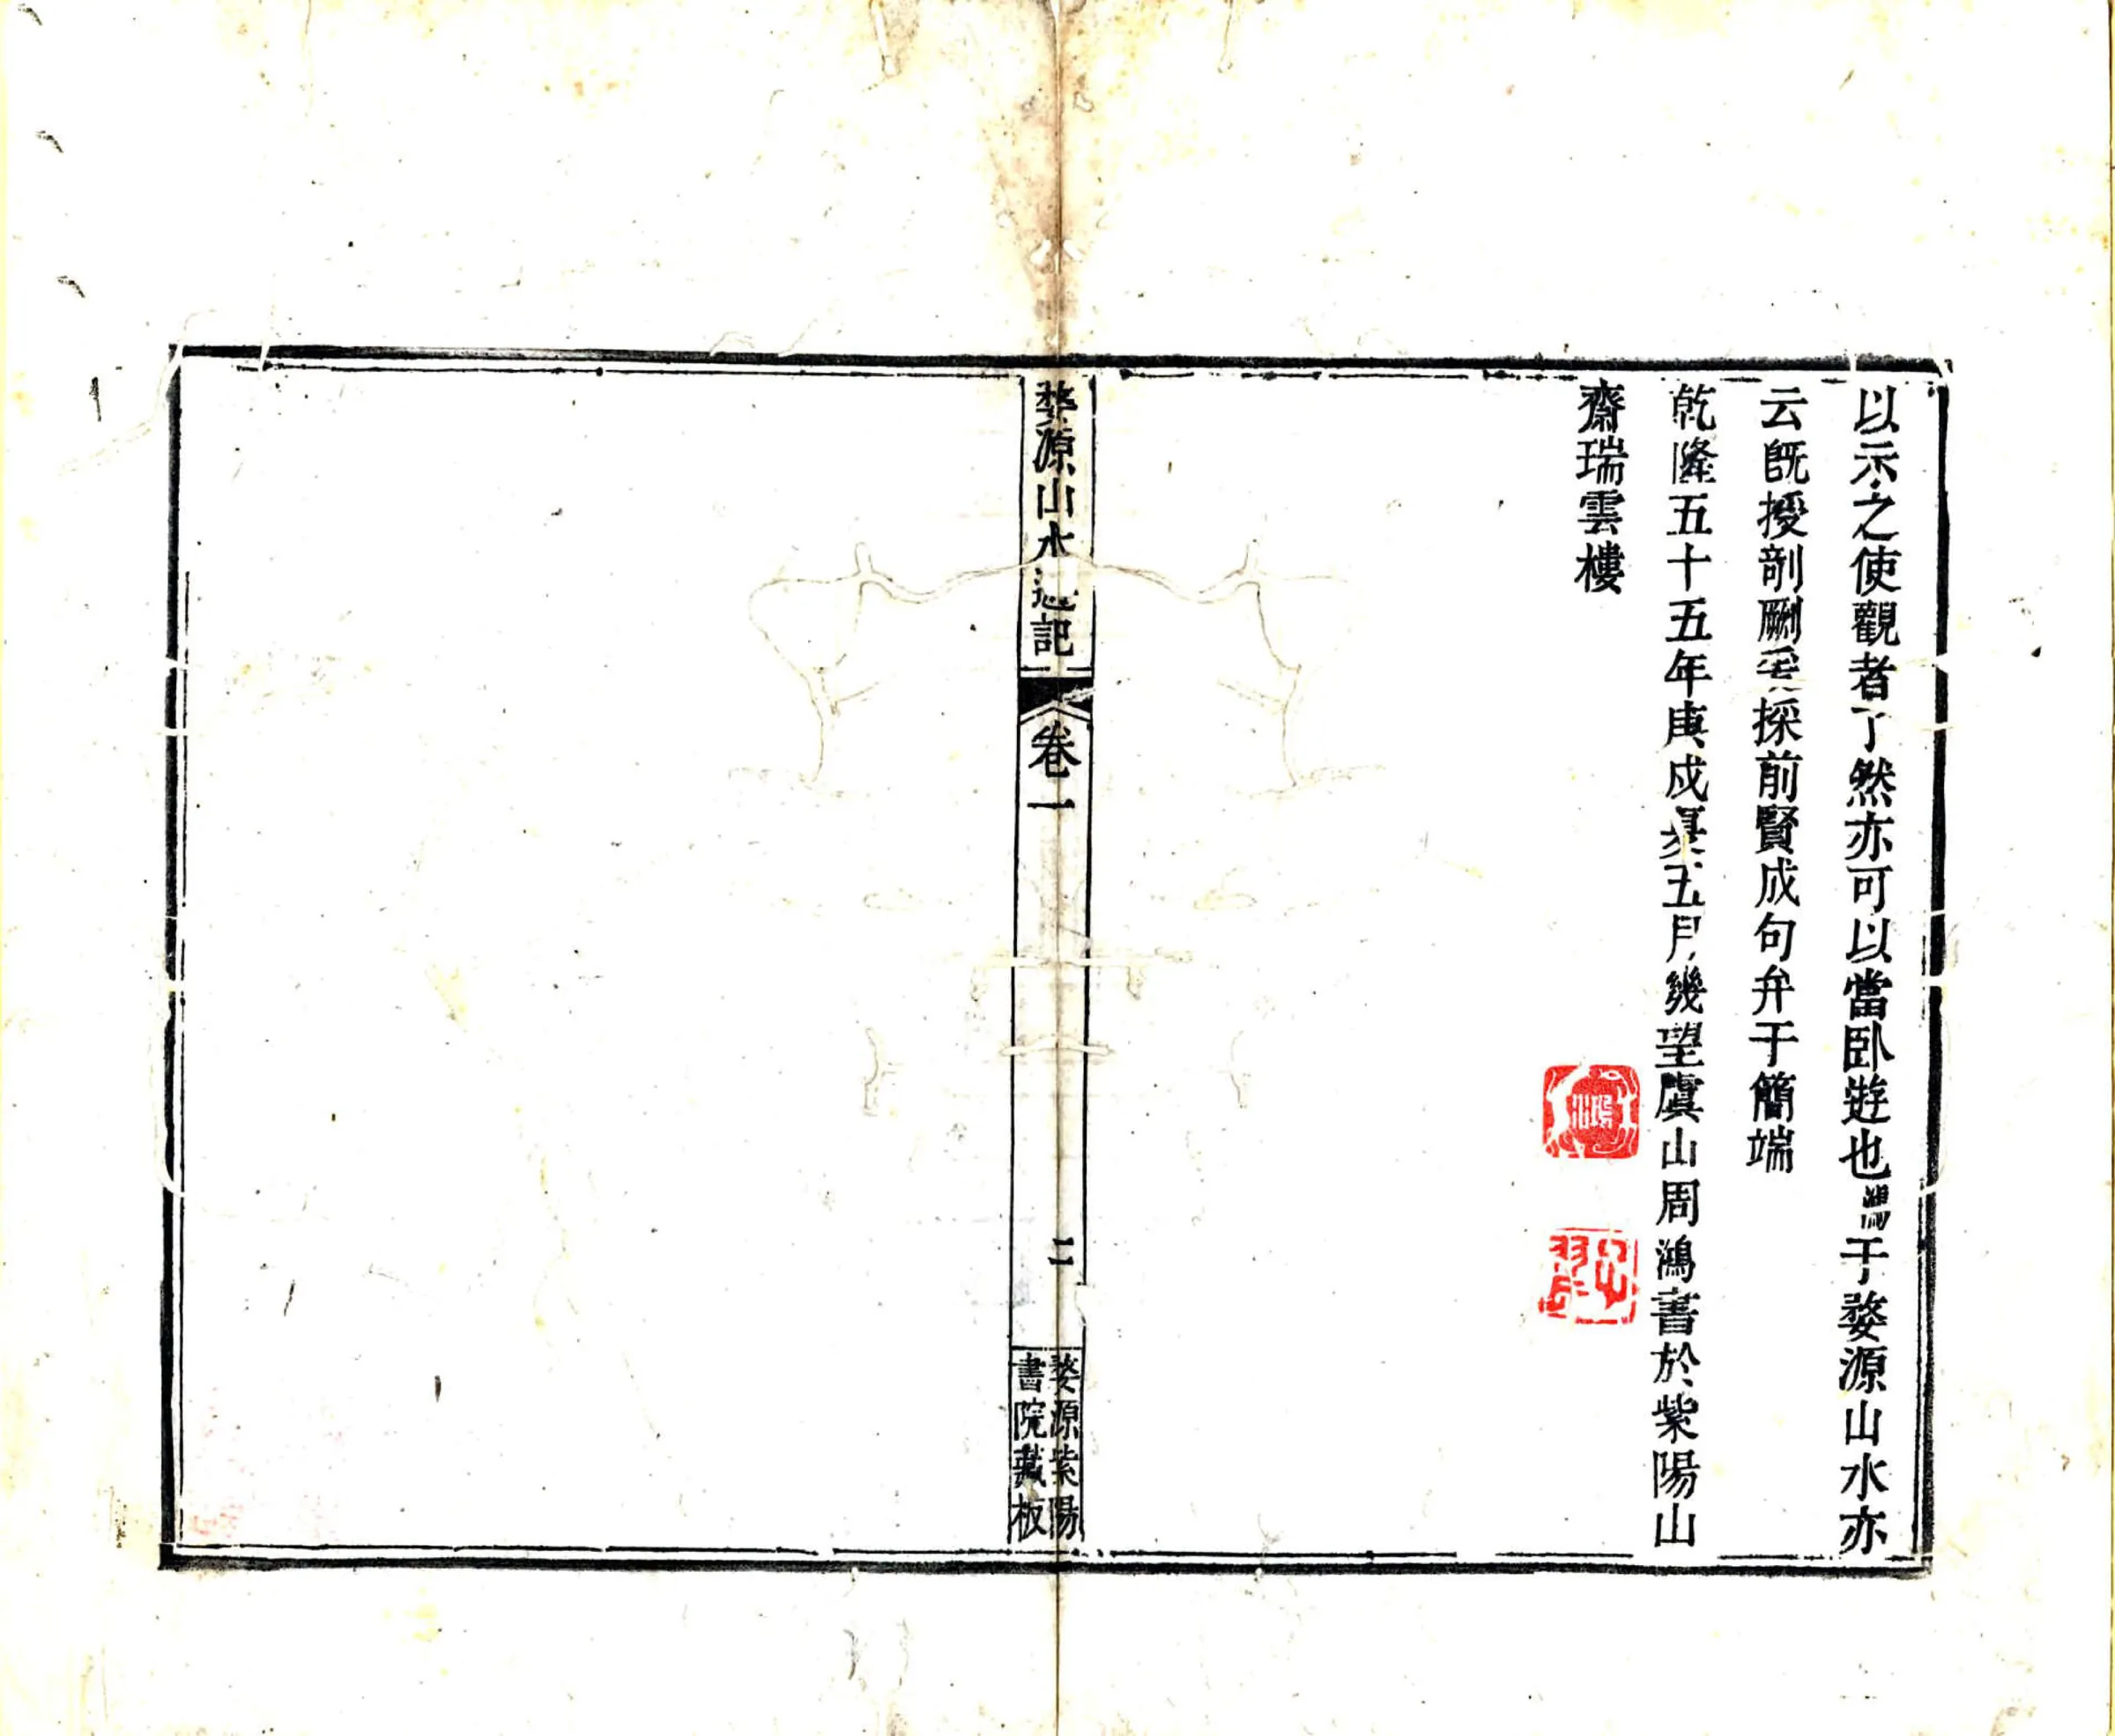 以示之使觀者了然亦可以當臥遊也鴻于婺源山水亦
云既授剞劂爰採前賢成句弁于簡端
乾隆五十五年庚戌夏五月幾望虞山周鴻書於紫陽山
齋瑞雲樓
婺源山水遊記
卷一
二
婺源紫陽
書院藏板